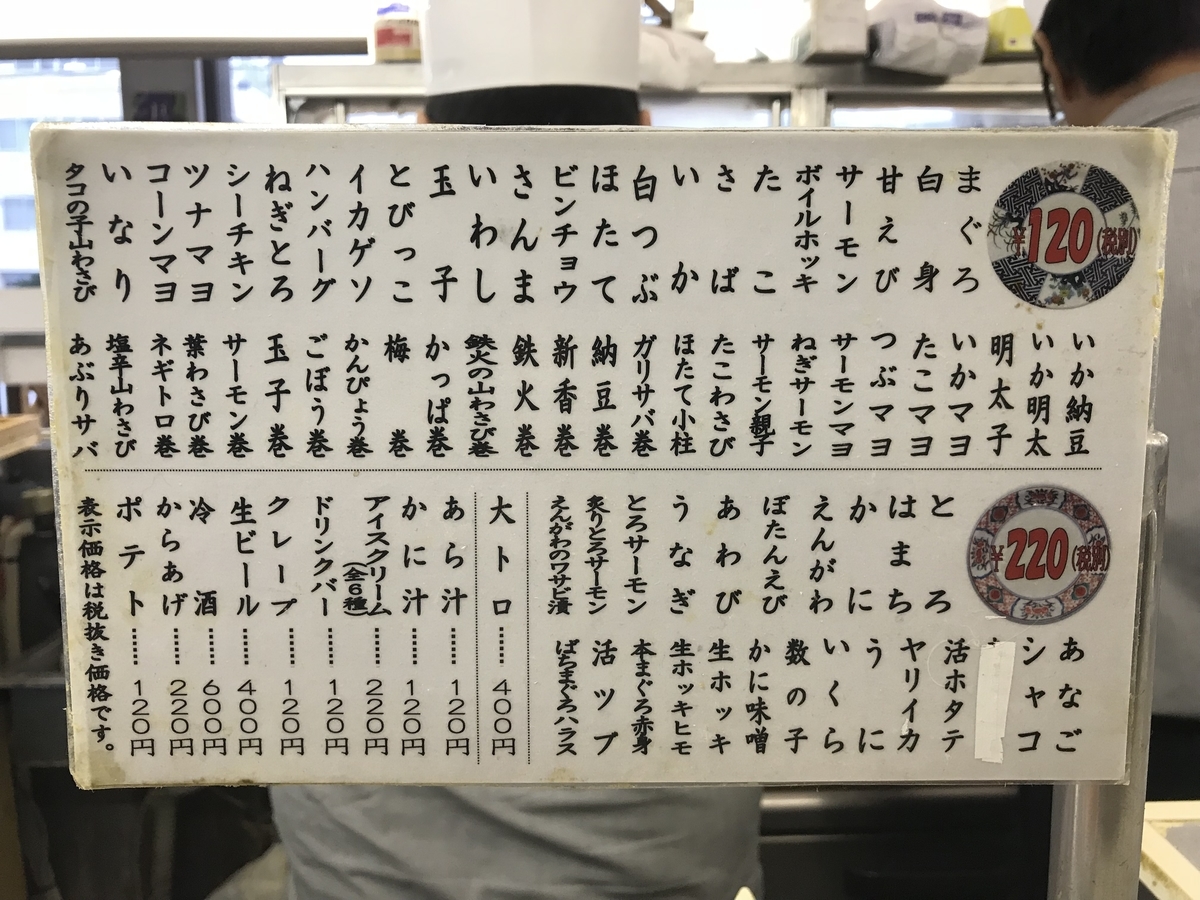 ¥120(税別)
まぐろ
白身
甘えび
サーモン
ボイルホッキ
たこ
さば
いか
白つぶ
ほたて
ビンチョウ
さんま
いわし
玉子
とびっこ
イカゲソ
ハンバーグ
ねぎとろ
シーチキン
ツナマヨ
コーンマヨ
いなり
タコの子山わさび
いか納豆
いか明太
明太子
いかマヨ
たこマヨ
つぶマヨ
サーモンマヨ
ねぎサーモン
サーモン親子
たこわさび
ほたて小柱
ガリサバ巻
納豆巻
新香巻
鉄火巻
鉄火の山わさび巻
かっぱ巻
梅巻
かんぴょう巻
ごぼう巻
玉子巻
サーモン巻
葉わさび巻
ネギトロ巻
塩辛山わさび
あぶりサバ
¥220(税別)
とろ
はまち
かに
えんがわ
ぼたんえび
あわび
うなぎ
とろサーモン
炙りとろサーモン
えんがわのワサビ漬
あなご
シャコ
活ホタテ
ヤリイカ
うに
いくら
数の子
かに味噌
生ホッキ
生ホッキヒモ
本まぐろ赤身
活ツブ
ばちまぐろハラス
大トロ……400円
あら汁……120円
かに汁……120円
アイスクリーム(全6種)……220円
ドリンクバー……120円
クレープ……120円
生ビール……400円
冷酒……600円
からあげ……220円
ポテト……120円
表示価格は税抜き価格です。